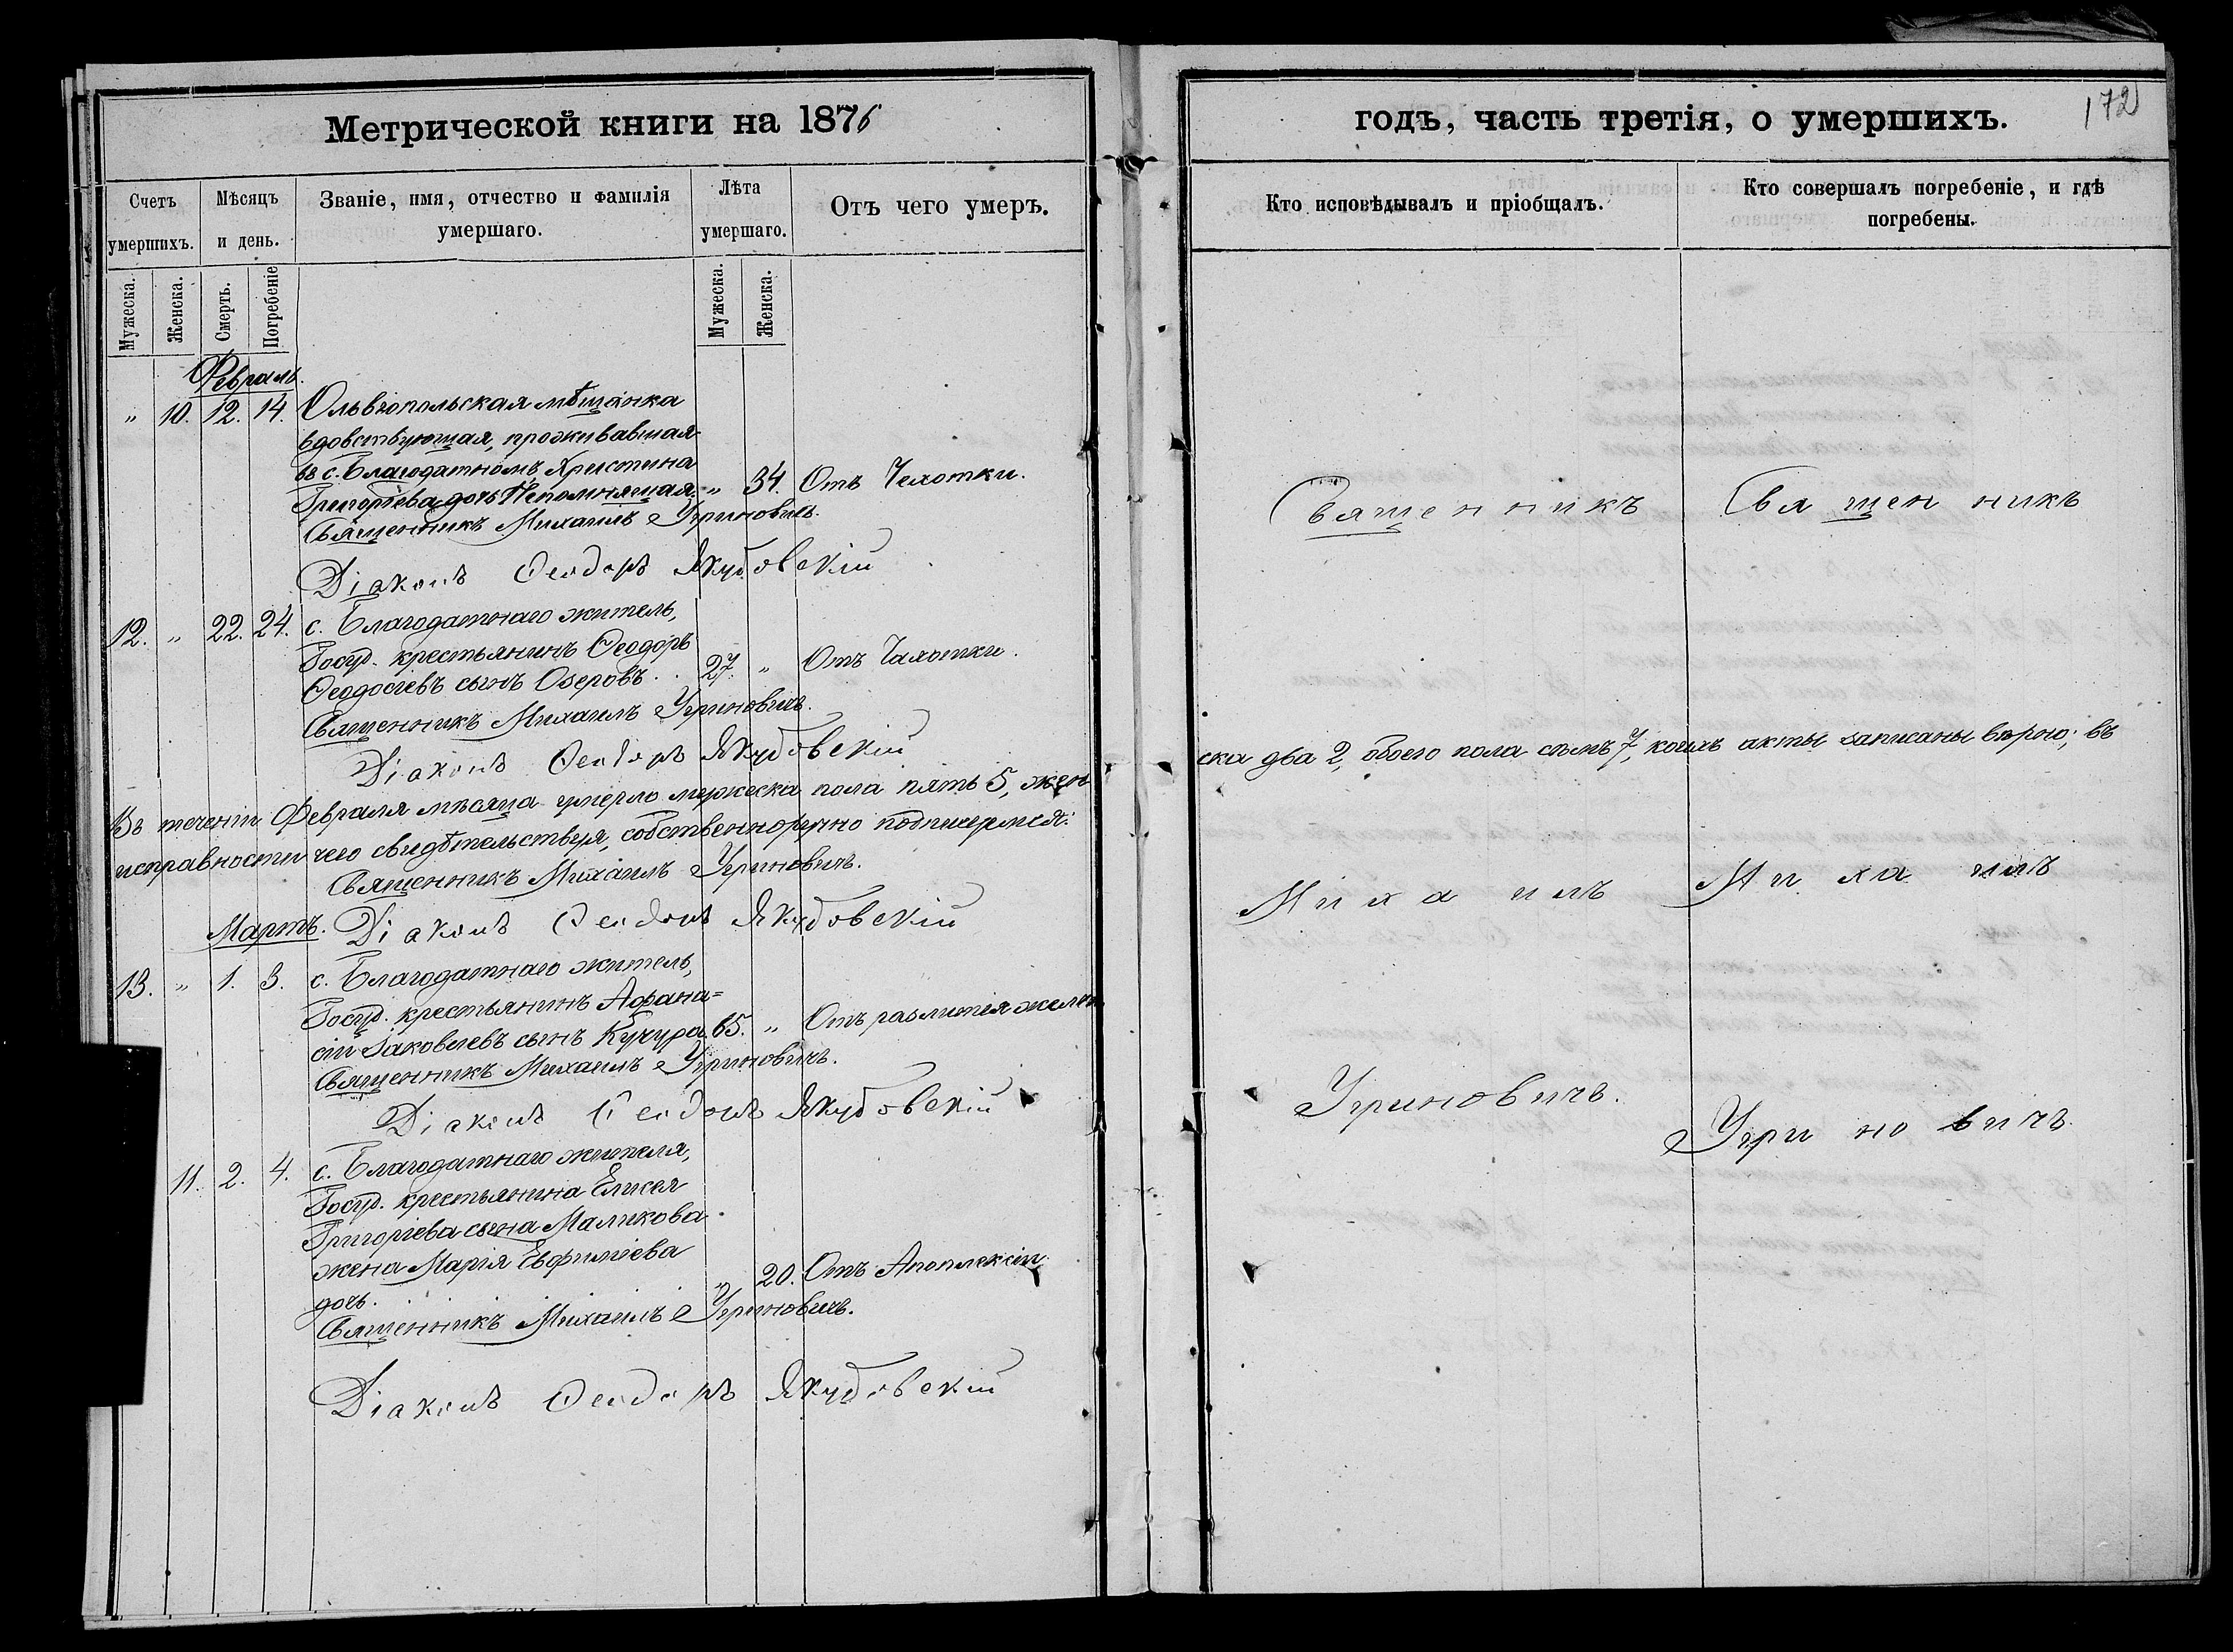 Метрической книги на 1876
Счетъ умершихъ.
Мѣсяцъ и день.
Званіе, имя, отчество и фамилія умершаго.
Лѣта умершаго.
Отъ чего умеръ.
Мужеска.
Женска.
Смерть.
Погребеніе
Мужеска.
Женска.
Февраль.
" 10. 12. 14. Ольвіопольская мѣщанка
вдовствующая, проживавшая
въ с. Благодатномъ Христина
Григоріева дочь Непомнящая. " 34. Отъ Чахотки.
Священникъ Михаилъ Угриновичъ.
Діаконъ Ѳеодоръ Якубовскій
12. " 22. 24. с. Благодатнаго житель,
Госуд. крестьянинъ Ѳеодоръ
Ѳеодосіевъ сынъ Озеровъ. 27. " Отъ Чахотки.
Священникъ Михаилъ Угриновичъ.
Діаконъ Ѳеодоръ Якубовскій
Въ теченіи Февраля мѣсяца умерло мужеска пола пять 5, жен
исправности чего свидѣтельствуя, собственноручно подписуемся:
Священникъ Михаилъ Угриновичъ.
Мартъ. Діаконъ Ѳеодоръ Якубовскій
13. " 1. 3. с. Благодатнаго житель,
Госуд. крестьянинъ Афана=
сій Іаковлевъ сынъ Кучура 65. " Отъ разлитія желчи
Священникъ Михаилъ Угриновичъ.
Діаконъ Ѳеодоръ Якубовскій
11. 2. 4. с. Благодатнаго жителя,
Госуд. крестьянина Елисея
Григоріева сына Маликова
жена Марія Евфиміева
дочь. " 20. Отъ Апоплексіи
Священникъ Михаилъ Угриновичъ.
Діаконъ Ѳеодоръ Якубовскій
годъ, часть третія, о умершихъ.
172
Кто исповѣдывалъ и пріобщалъ.
Кто совершалъ погребеніе, и гдѣ
погребены.
Священникъ Священникъ
ска два 2, обоего пола семъ 7, коихъ акты записаны вѣрно; въ
Михаилъ Михаилъ
Угриновичъ.
Угриновичъ